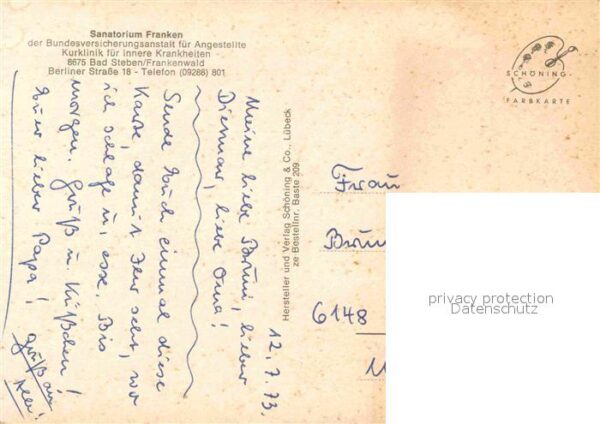 Sanatorium Franken
der Bundesversicherungsanstalt für Angestellte
Kurklinik für innere Krankheiten
8675 Bad Steben/Frankenwald
Berliner Straße 18 - Telefon (09288) 801
SCHÖNING
FARBKARTE
12. 7. 73.
Meine liebe Brüni, lieber
Dietmar, liebe Oma!
Sende Euch einmal diese
Karte, damit Ihr seht, wo
ich schlafe u. esse. Bis
morgen. Gruß u. Küßchen!
Euer lieber Papa!
Gruß an
Alle!
Hersteller und Verlag Schöning & Co., Lübeck
ze Bestellnr. Baste 209
Frau
Brun
6148
privacy protection
Datenschutz